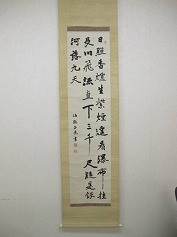 日照香爐生紫煙遙看瀑布挂
長川飛流直下三千尺疑是銀
河落九天